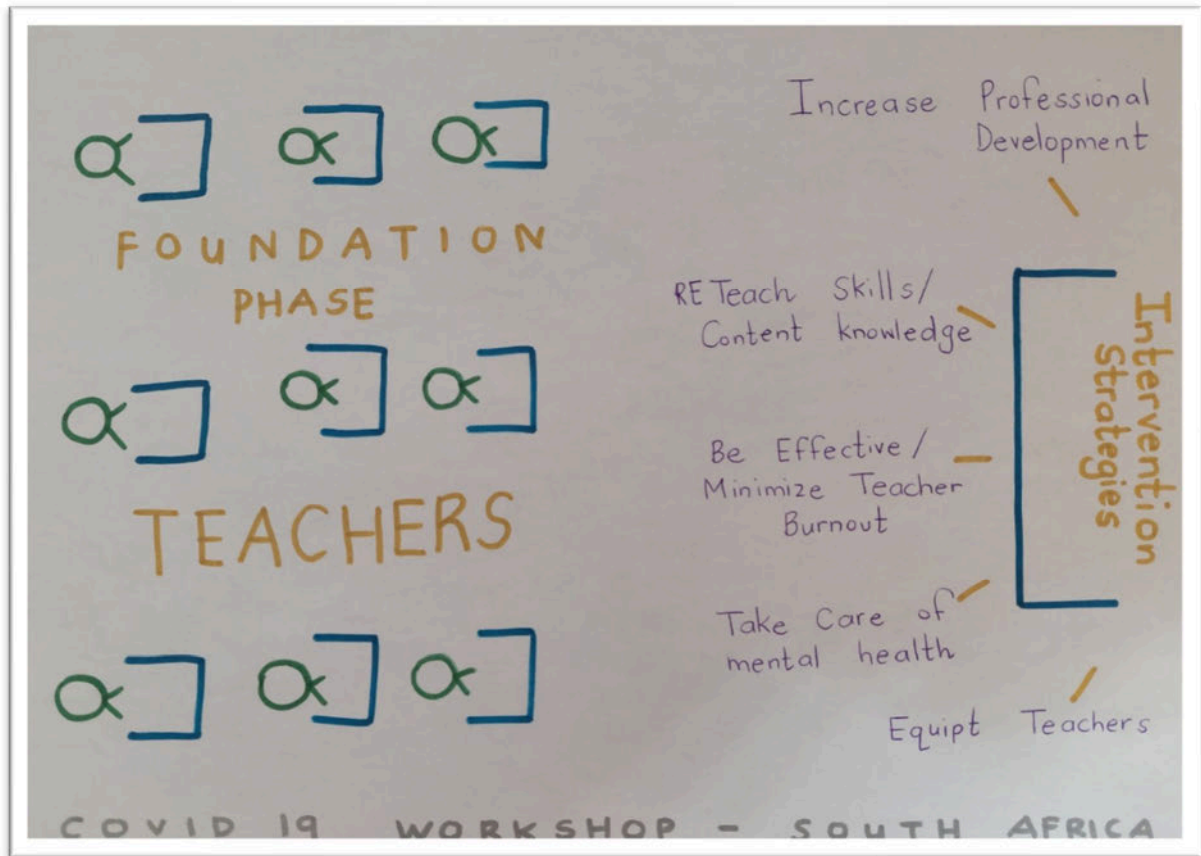 FOUNDATION
PHASE
TEACHERS
Increase Professional
Development
RETeach Skills/
Content knowledge
Be Effective/
Minimize Teacher
Burnout
Take Care of
mental health
Equipt Teachers
Intervention
Strategies
COVID 19 WORKSHOP - SOUTH AFRICA